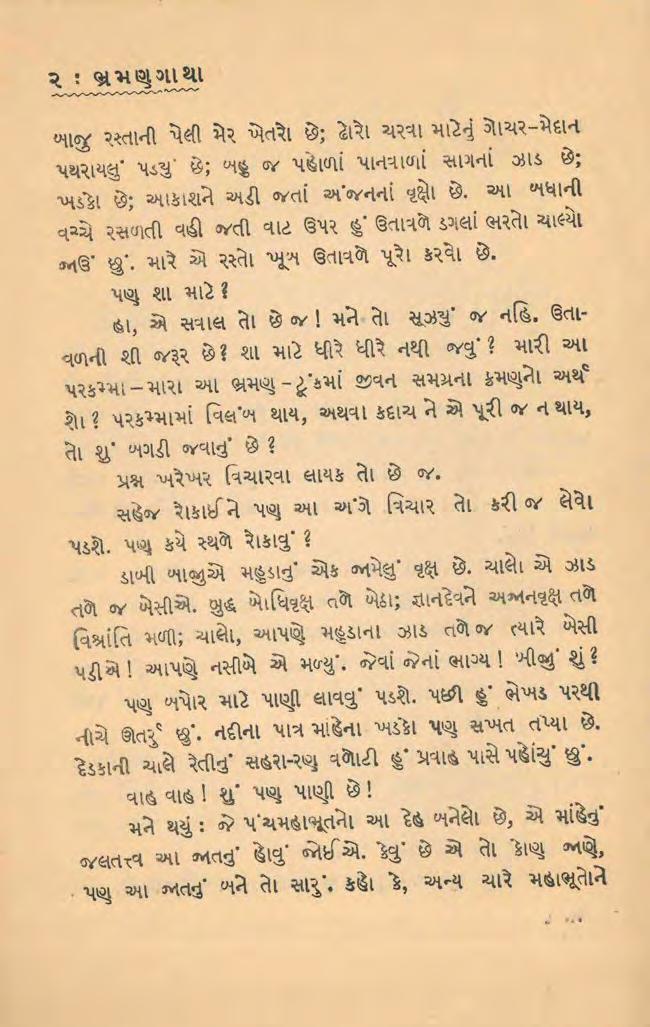 ૨ : ભ્રમણગાથા
બાજુ રસ્તાની પેલી મેર ખેતરો છે; ઢોરો ચરવા માટેનું ગોચર–મેદાન
પથરાયલું પડ્યું છે; બહુ જ પહોળાં પાનવાળાં સાગનાં ઝાડ છે;
ખડકો છે; આકાશને અડી જતાં અંજનનાં વૃક્ષો છે. આ બધાની
વચ્ચે રસળતી વહી જતી વાટ ઉપર હું ઉતાવળે ડગલાં ભરતો ચાલ્યો
જાઉં છું. મારે એ રસ્તો ખૂબ ઉતાવળે પૂરો કરવો છે.
પણ શા માટે?
હા, એ સવાલ તો છે જ! મને તો સૂઝ્યું જ નહિ. ઉતા-
વળની શી જરૂર છે? શા માટે ધીરે ધીરે નથી જવું? મારી આ
પરકમ્મા – મારા આ ભ્રમણ – ટૂંકમાં જીવન સમગ્રના ક્રમણનો અર્થ
શો? પરકમ્મામાં વિલંબ થાય, અથવા કદાચ ને એ પૂરી જ ન થાય,
તો શું બગડી જવાનું છે?
પ્રશ્ન ખરેખર વિચારવા લાયક તો છે જ.
સહેજ રોકાઈને પણ આ અંગે વિચાર તો કરી જ લેવો
પડશે. પણ કયે સ્થળે રોકાવું?
ડાબી બાજુએ મહુડાનું એક જામેલું વૃક્ષ છે. ચાલો એ ઝાડ
તળે જ બેસીએ. બુદ્ધ બોધિવૃક્ષ તળે બેઠા; જ્ઞાનદેવને અજાનવૃક્ષ તળે
વિશ્રાંતિ મળી; ચાલો, આપણે મહુડાના ઝાડ તળે જ ત્યારે બેસી
પડીએ! આપણે નસીબે એ મળ્યું. જેવાં જેનાં ભાગ્ય! બીજું શું?
પણ બપોર માટે પાણી લાવવું પડશે. પછી હું ભેખડ પરથી
નીચે ઊતરું છું. નદીના પાત્ર માંહેના ખડકો પણ સખત તપ્યા છે.
દેડકાની ચાલે રેતીનું સહરા-રણ વળોટી હું પ્રવાહ પાસે પહોંચું છું.
વાહ વાહ! શું પણ પાણી છે!
મને થયું : જે પંચમહાભૂતનો આ દેહ બનેલો છે, એ માંહેનું
જલતત્ત્વ આ જાતનું હોવું જોઈએ. કેવું છે એ તો કોણ જાણે,
પણ આ જાતનું બને તો સારું. કહો કે, અન્ય ચારે મહાભૂતોને